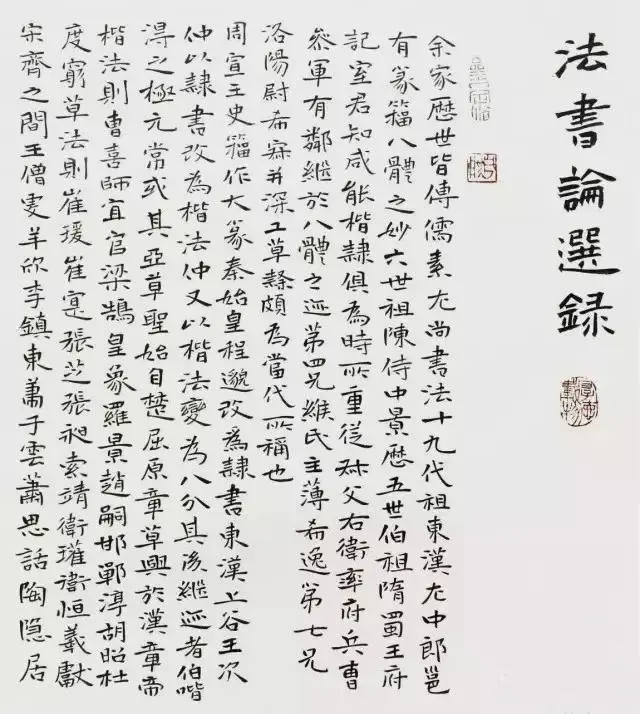 法書論選録
余家歷世皆傳儒素尤尚書法十九代祖東漢左中郎邕
有篆籀八體之妙六世祖陳侍中景歷五世伯祖隋蜀王府
記室君知咸能楷隸俱為時所重從叔父右衛率府兵曹
叅軍有鄰繼於八體之迹第四兄緱氏主薄希逸第七兄
洛陽尉希寂并深工草隸頗為當代所稱也
周宣王史籀作大篆秦始皇程邈改為隸書東漢上谷王次
仲以隸書改為楷法仲又以楷法變為八分其後繼迹者伯喈
得之極元常或其亞草聖始自楚屈原章草興於漢章帝
楷法則曹喜師宜官梁鵠皇象羅景趙嗣邯鄲淳胡昭杜
度窮草法則崔瑗崔寔張芝張昶索靖衛瓘衛恒羲獻
宋齊之間王僧虔羊欣李鎮東蕭子雲蕭思話陶隱居